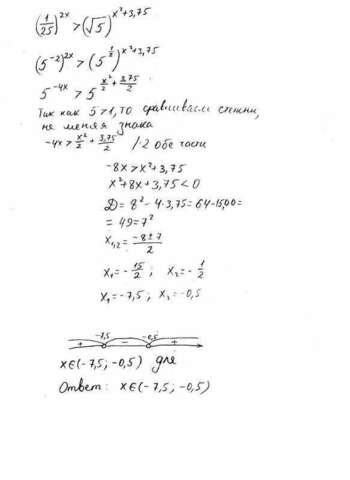 (1/25)^{2x} > (√5)^{x²+3,75}
(5^{-2})^{2x} > (5^{1/2})^{x²+3,75}
5^{-4x} > 5^{x²/2 + 3,75/2}
Так как 5>1, то сравниваем степени,
не меняя знака
-4x > x²/2 + 3,75/2 /·2 обе части
-8x > x²+3,75
x²+8x+3,75<0
D = 8² - 4·3,75 = 64-15,00 =
= 49 = 7²
x₁,₂ = (-8±7)/2
x₁ = -15/2 ; x₂ = -1/2
x₁ = -7,5 ; x₂ = -0,5
-7,5 -0,5
+ - +
x∈(-7,5; -0,5) для
Ответ: x∈(-7,5; -0,5)